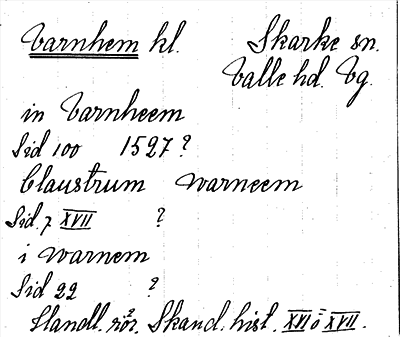 Varnhem kl. Skarke sn.
Valle hd. Vg.
in Varnheem
Sid 100 1527?
Claustrum Warneem
Sid. 7 XVII ?
i Warnem
Sid 22 ?
Handl. rör. Skand. hist. XVI o XVII.